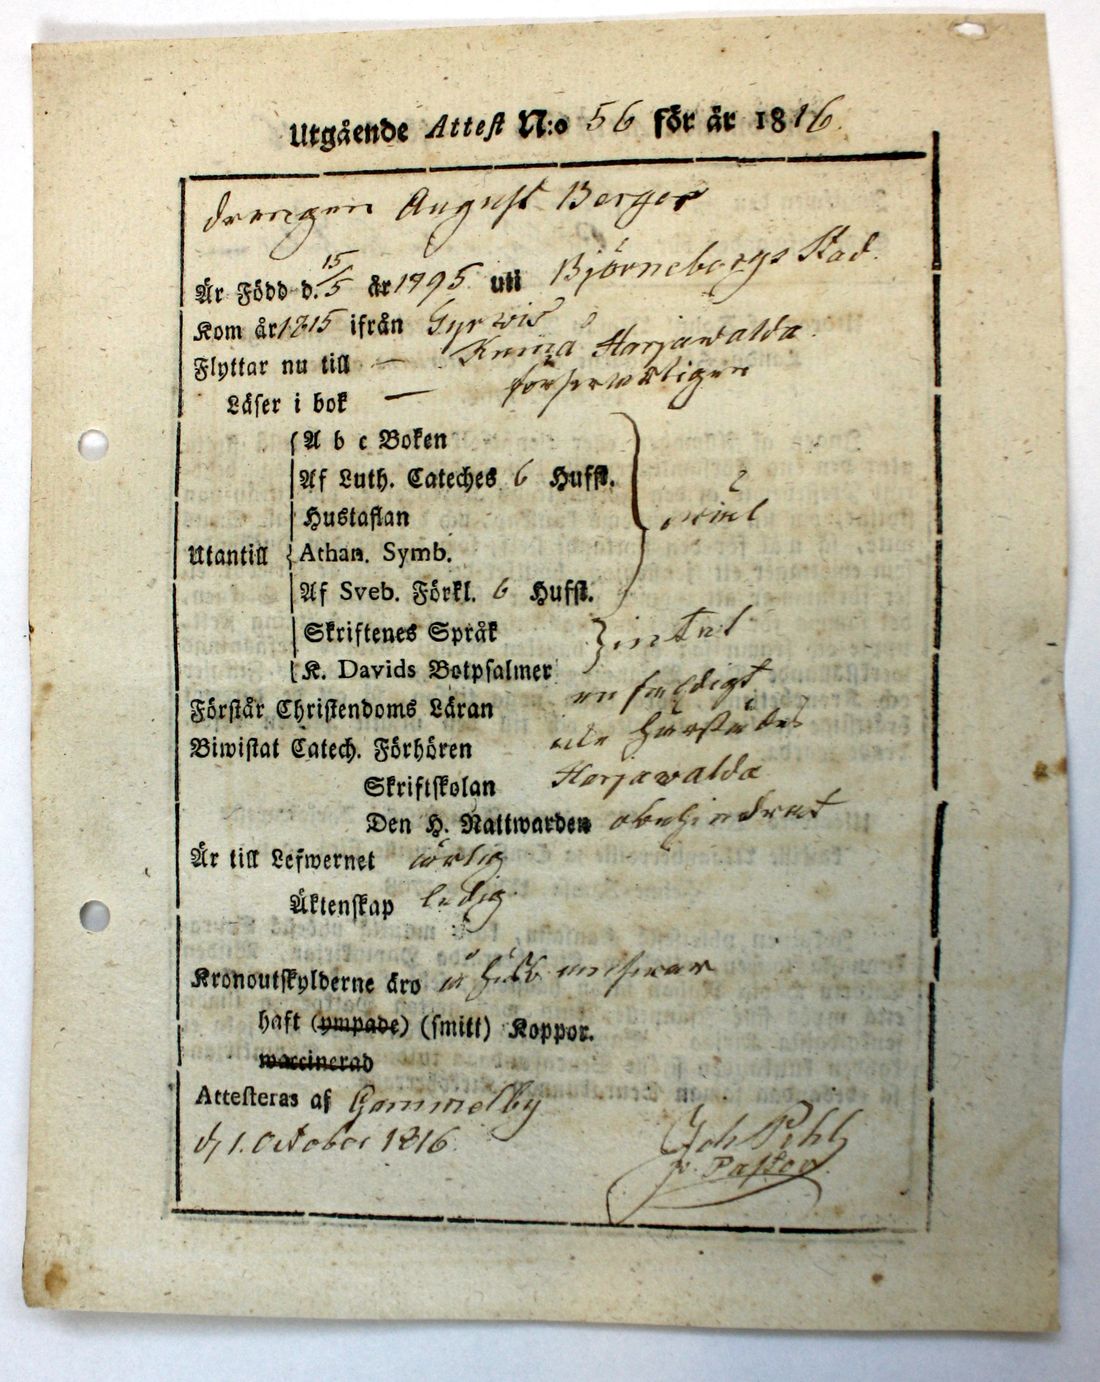 Utgående Attest N:o 56 för år 1816.
drengen August Berger
Är Född d. 15/5 år 1795 uti Björneborgs Stad.
Kom år 1815 ifrån
Flyttar nu till — Harjawalda.
Läser i bok — försvarligen
A b c Boken
Af Luth. Cateches 6 Hufst.
Hustaflan
Utantill Athan. Symb.
Af Sveb. Förkl. 6 Hufst.
Skriftenes Språk intet
K. Davids Botpsalmer
Förstår Christendoms Läran enfaldigt
Biwistat Catech. Förhören
Skriftskolan Harjawalda
Den H. Nattwarden obehindrat
Är till Lefwernet ärlig
Äktenskap ledig.
Kronoutskylderne äro
haft (ympade) (smitt) Koppor.
waccinerad
Attesteras af Gammelby
d. 1. October 1816.
Joh
v. Pastor.